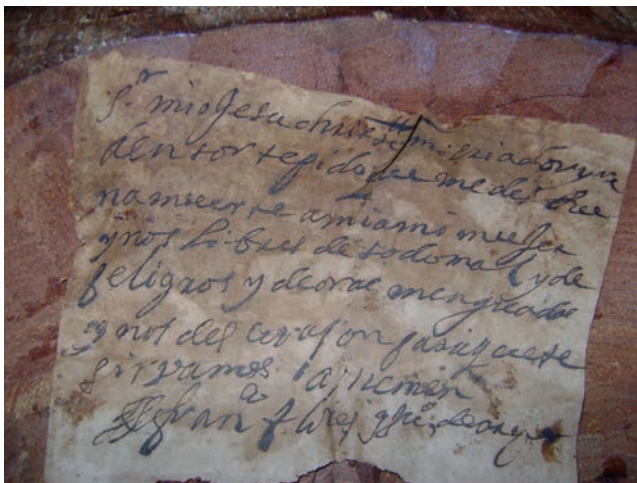 Sr mio Jesuchristo mi criador y re
dentor te pido que me des bue
na muerte a mi a mi muger
y nos libres de todo mal y de
peligros y de oras menguadas
y nos des corason para que te
sirvamos amen
fran co flores